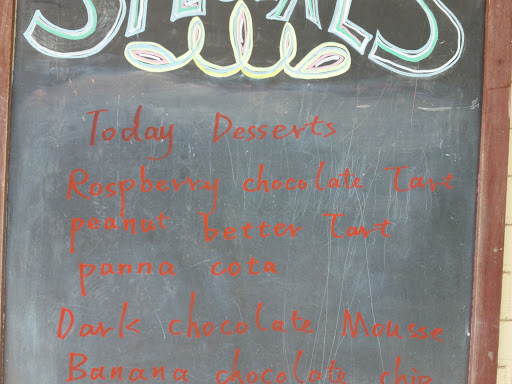 SPECIALS
Today Desserts
Rospberry chocolate Tart
peanut better Tart
panna cota
Dark chocolate Mousse
Banana chocolate chip